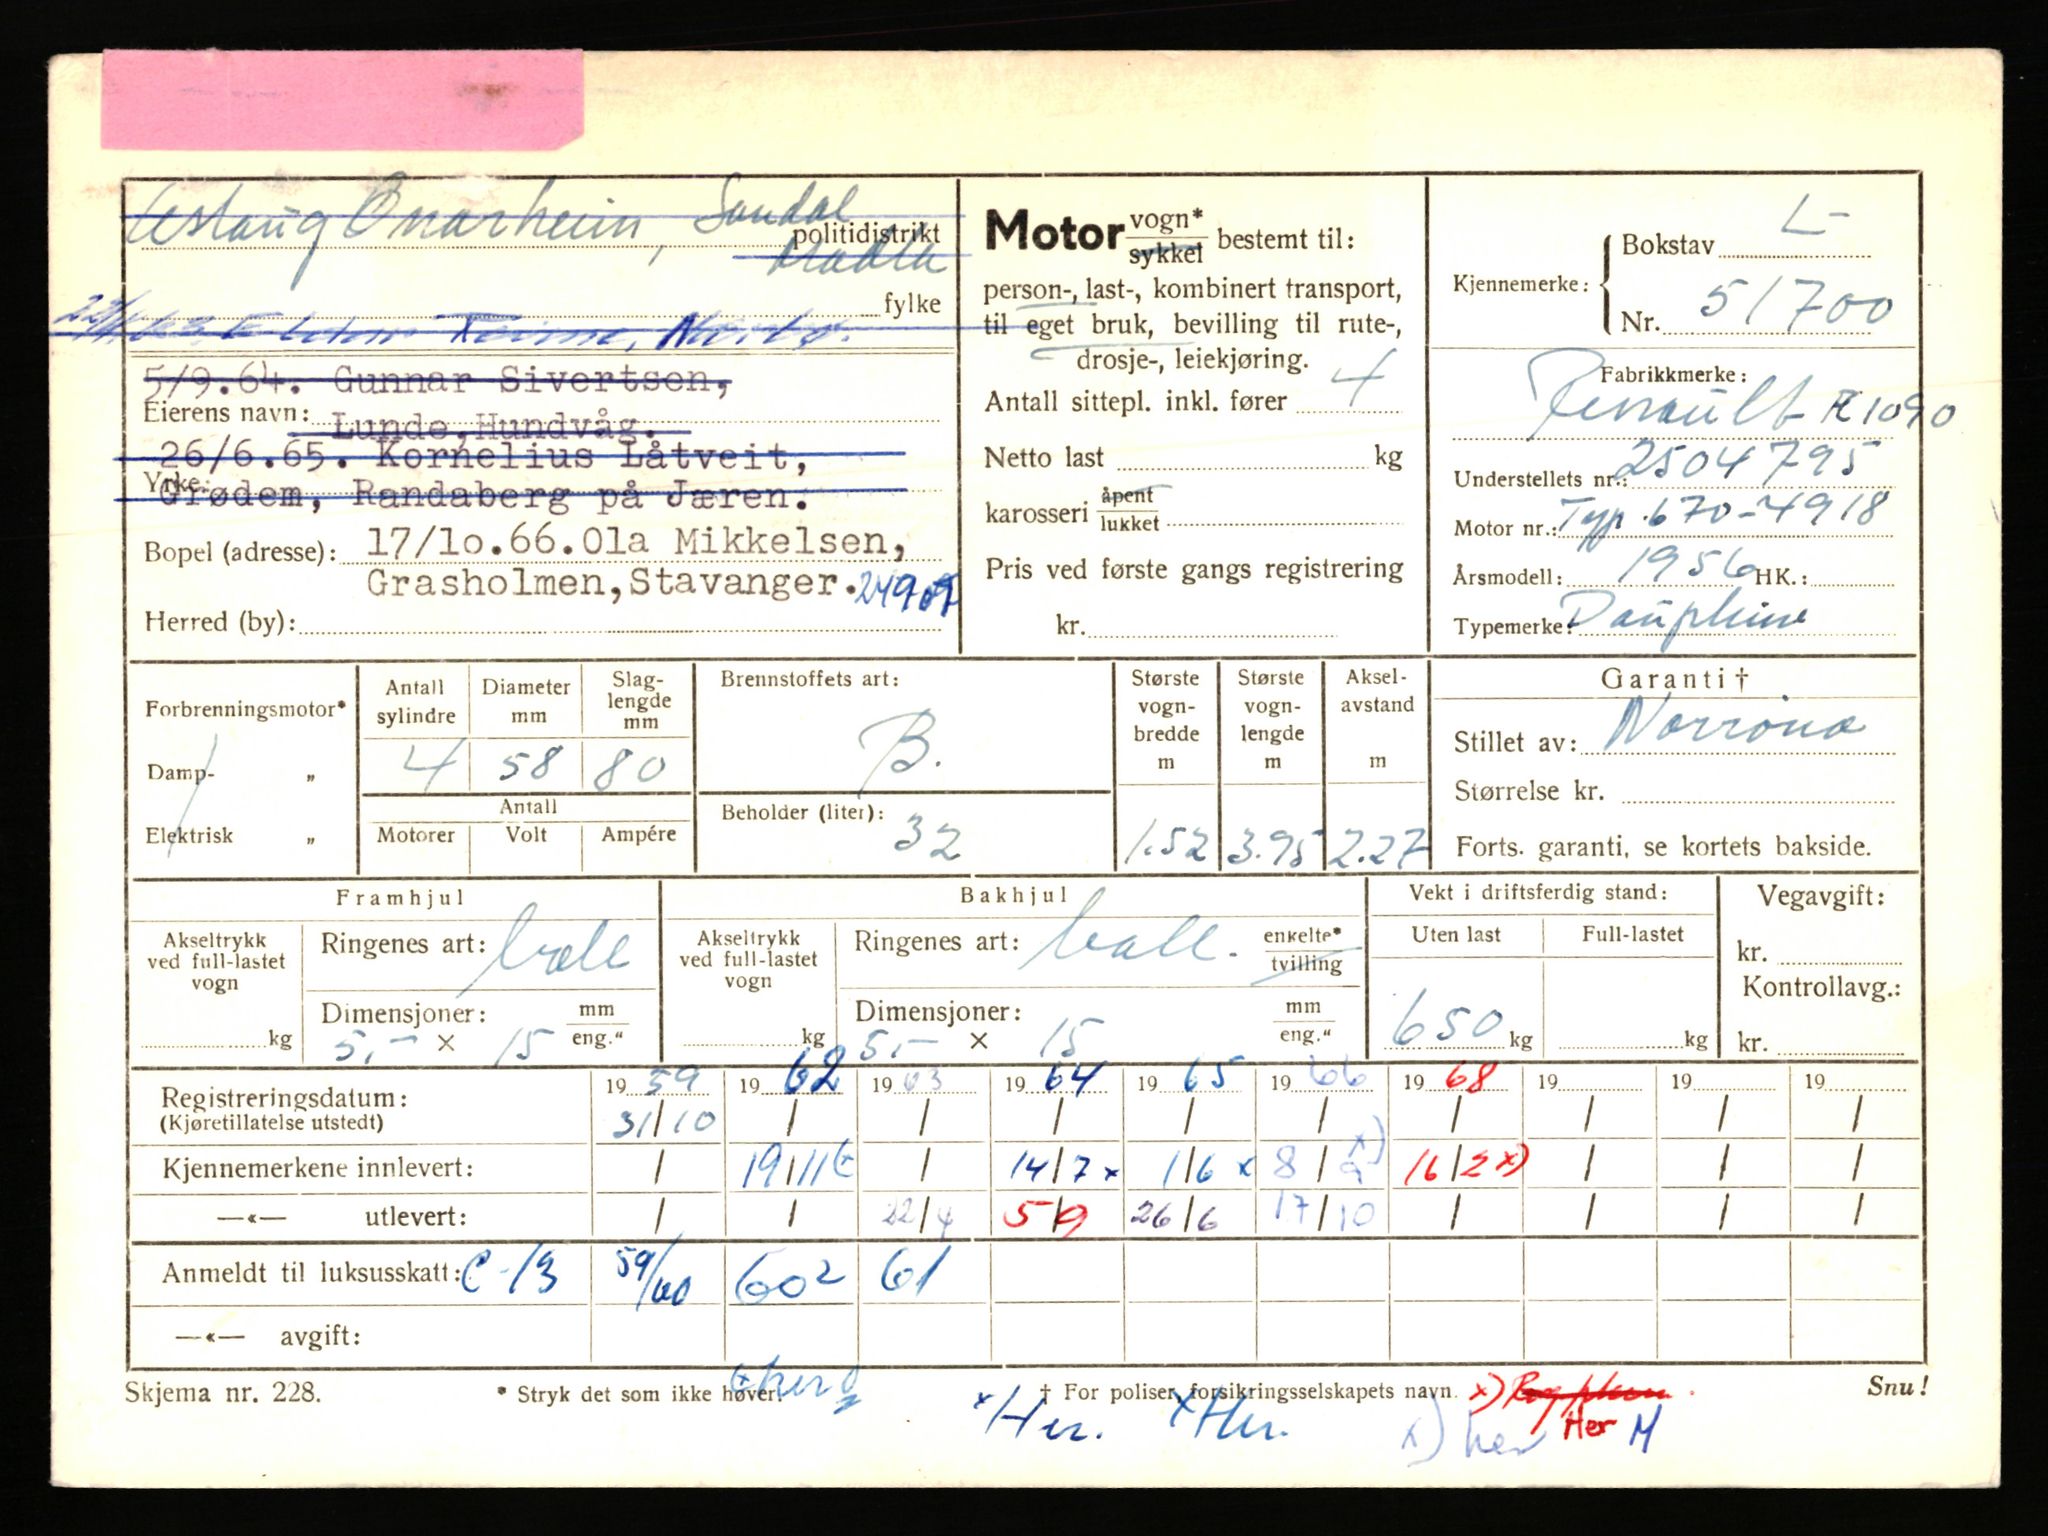 Aslaug Onarheim, Sandal
politidistrikt
Madla
fylke
5/9.64. Gunnar Sivertsen,
Eierens navn:
Lunde, Hundvåg.
26/6.65. Kornelius Låtveit,
Yrke:
Grødem, Randaberg på Jæren.
Bopel (adresse): 17/10.66. Ola Mikkelsen,
Grasholmen, Stavanger.
Herred (by):
Motor vogn* / sykkel bestemt til:
person-, last-, kombinert transport,
til eget bruk, bevilling til rute-,
drosje-, leiekjøring.
Antall sittepl. inkl. fører 4
Netto last kg
karosseri åpent / lukket
Pris ved første gangs registrering
kr.
Kjennemerke: Bokstav L-
Nr. 51700
Fabrikkmerke:
Renault R 1090
Understellets nr.: 2504795
Motor nr.: Typ. 670-4918
Årsmodell: 1956 HK.:
Typemerke: Dauphine
Forbrenningsmotor*
Damp- „
Elektrisk „
Antall sylindre 4
Diameter mm 58
Slaglengde mm 80
Antall
Motorer Volt Ampére
Brennstoffets art:
B.
Beholder (liter):
32
Største vognbredde m 1.52
Største vognlengde m 3.95
Akselavstand m 2.27
Garanti †
Stillet av: Norrøna
Størrelse kr.
Forts. garanti, se kortets bakside.
Framhjul
Akseltrykk ved full-lastet vogn
kg
Ringenes art: ball
Dimensjoner: mm / eng."
5.- × 15
Bakhjul
Akseltrykk ved full-lastet vogn
kg
Ringenes art: ball. enkelte* / tvilling
Dimensjoner: mm / eng."
5.- × 15
Vekt i driftsferdig stand:
Uten last Full-lastet
650 kg kg
Vegavgift:
kr.
Kontrollavg.:
kr.
Registreringsdatum: 19 59 19 62 19 63 19 64 19 65 19 66 19 68 19 19 19
(Kjøretillatelse utstedt) 31/10 / / / / / / / / /
Kjennemerkene innlevert: / 19/11 / 14/7 x 1/6 x 8/9 x) 16/2 x) / / /
—«— utlevert: / / 22/4 5/9 26/6 17/10 / / / /
Anmeldt til luksusskatt: C-13 59/60 60² 61
—«— avgift:
Skjema nr. 228.
* Stryk det som ikke høver.
† For poliser, forsikringsselskapets navn.
Snu!
x Her.
x Her.
x) her
x)
Her M